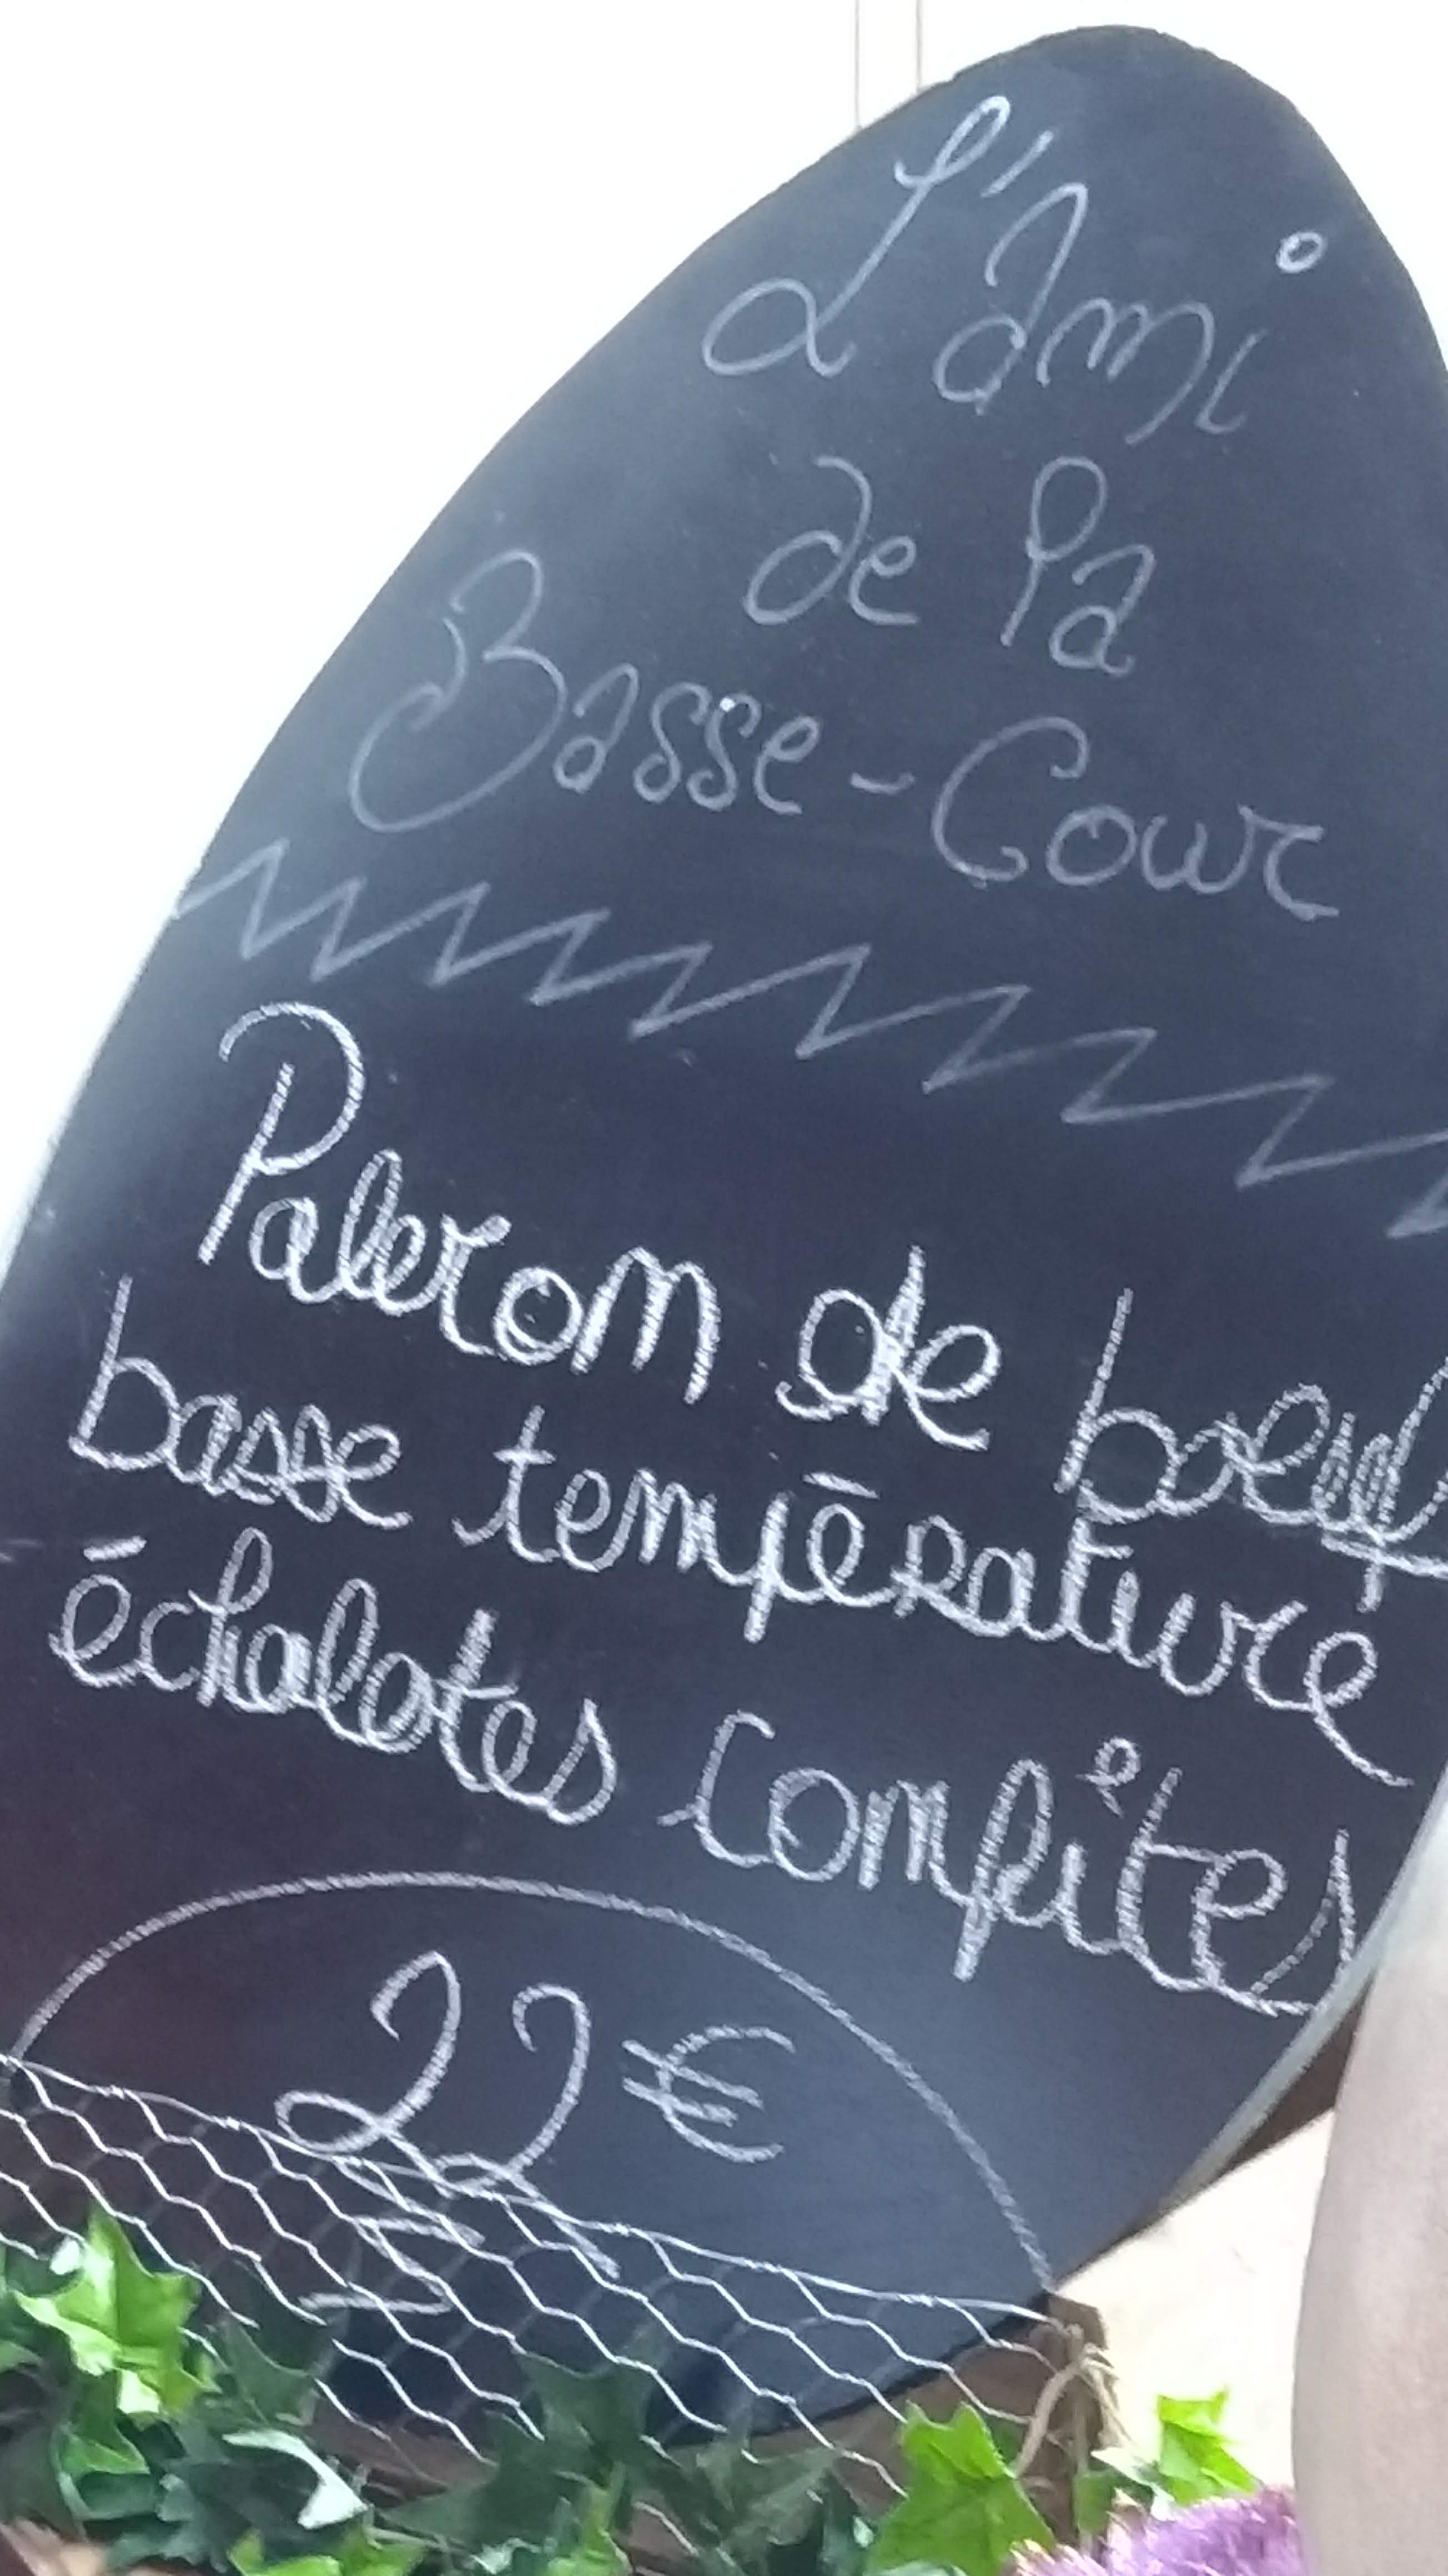 L'Ami
de la
Basse-Cour
Paleron de boeuf
basse température
échalotes confites
22€